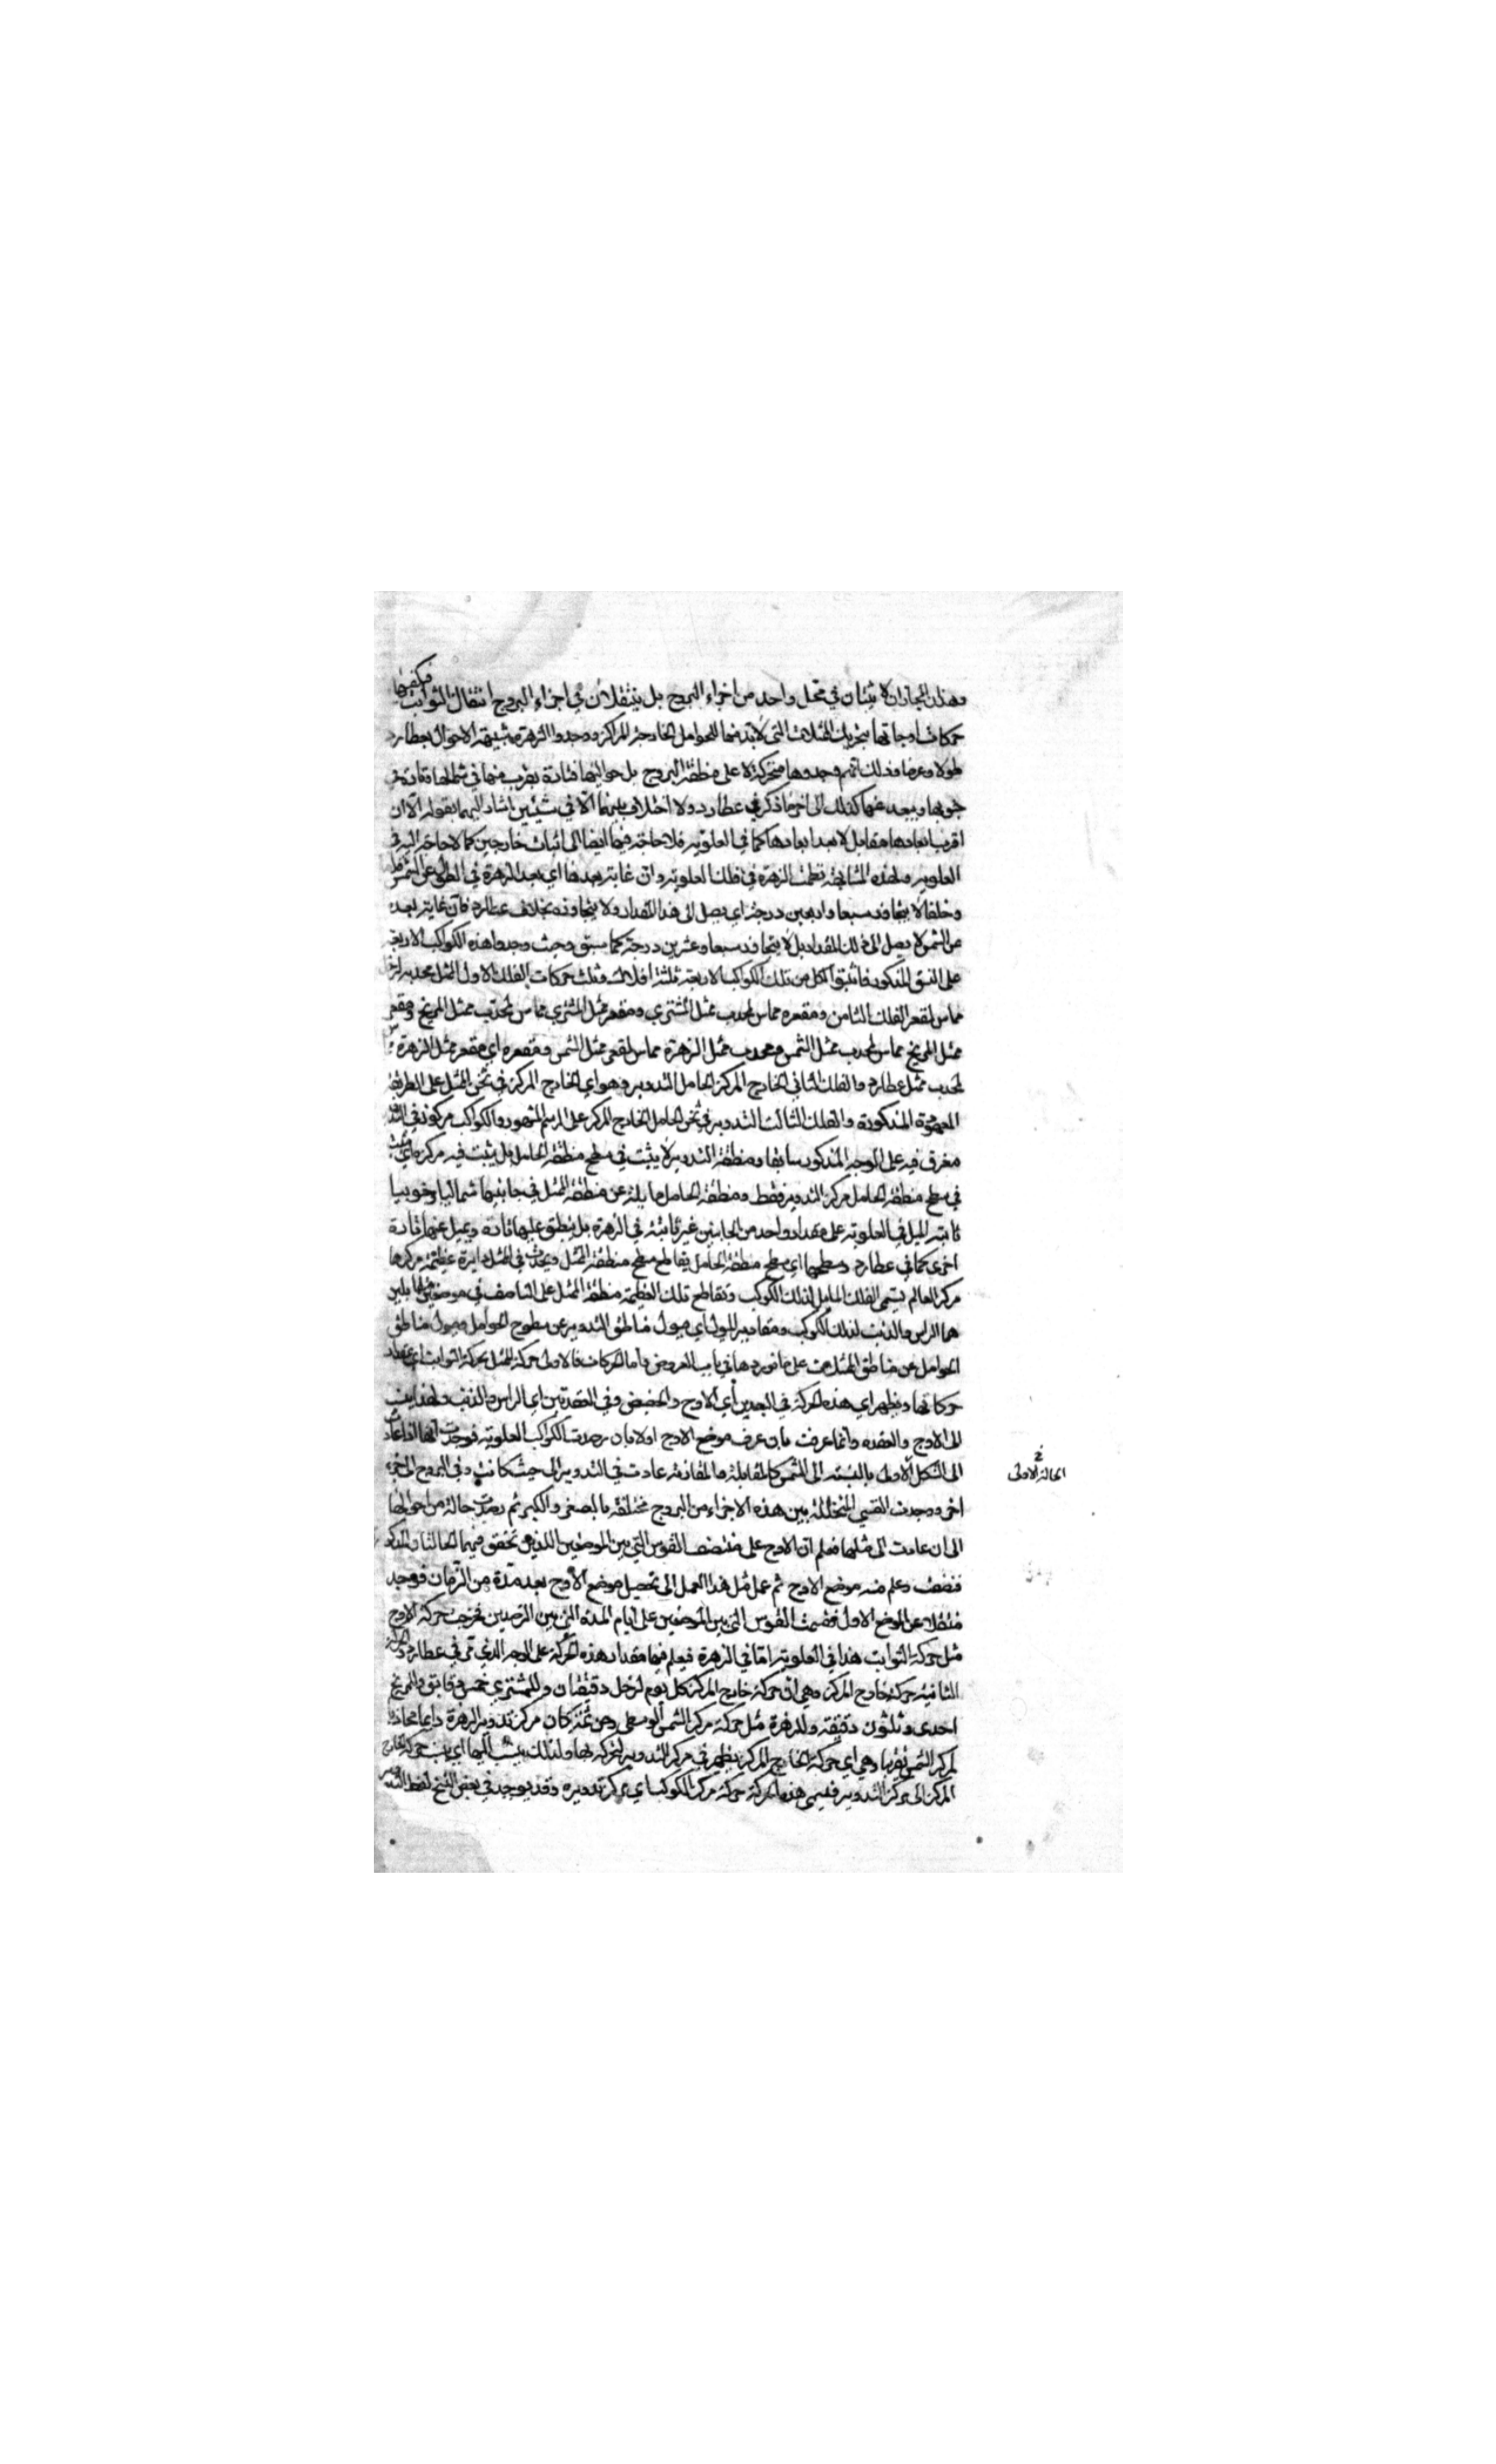 وهذان المجازان لا يثبتان في محل واحد من اجزاء البروج بل ينتقلان في اجزاء البروج انتقال الثوابت
حركات اوجاتها بتحريك الممثلات التي لابد منها للحوامل الخارجة المراكز ووجدوا الزهرة شبيهة الاحوال بعطارد
طولا وعرضا وذلك انهم وجدوها متحركة لا على منطقة البروج بل حواليها فتارة يقرب منها في شمالها وتارة في
جنوبها ويبعد عنها كذلك الى اخر ما ذكر في عطارد ولا اختلاف بينهما الا في شيئين اشار اليهما بقوله الا ان
اقرب ابعادها مقابل لابعد ابعادها كما في العلوية فلا حاجة فيها ايضا الى اثبات خارجين كما لا حاجة اليه في
العلوية ولهذه المشابهة نظمت الزهرة في العلوية وان غاية بعدها اي بعد الزهرة في الطول عن الشمس
وخلفا لا يتجاوز سبعا واربعين درجة اي يصل الى هذا المقدار ولا يتجاوزه بخلاف عطارد فان غاية بعده
عن الشمس لا يصل الى ذلك المقدار بل لا يتجاوز سبعا وعشرين درجة كما سبق وحيث وجدوا هذه الكواكب الاربعة
على النسق المذكور فاثبتوا لكل من تلك الكواكب الاربعة ثلثة افلاك وثلث حركات الفلك الاول الممثل محدبه
مماس لمقعر الفلك الثامن ومقعره مماس لمحدب ممثل المشتري ومقعر ممثل المشتري مماس لمحدب ممثل المريخ ومقعر
ممثل المريخ مماس لمحدب ممثل الشمس ومحدب ممثل الزهرة مماس لمقعر ممثل الشمس ومقعره اي مقعر ممثل الزهرة
لمحدب ممثل عطارد والفلك الثاني الخارج المركز الحامل للتدوير وهو اي الخارج المركز في ثخن الممثل على الطريقة
المعهودة المذكورة والفلك الثالث التدوير في ثخن الحامل الخارج المركز على الرسم المشهور والكواكب مركوزة في
مغرق فيه على الوجه المذكور سابقا ومنطقة التدوير لا يثبت في سطح منطقة الحامل بل يثبت فيه مركزه اي يثبت
في سطح منطقة الحامل مركز التدوير فقط ومنطقة الحامل مايلة عن منطقة الممثل في جانبيها شماليا وجنوبيا
ثابتة الميل في العلوية على مقدار واحد من الجانبين غير ثابتة في الزهرة بل ينطبق عليها تارة ويميل عنها تارة
اخرى كما في عطارد وسطحها اي سطح منطقة الحامل يقاطع سطح منطقة الممثل ويحدث في الممثل دايرة عظيمة مركزها
مركز العالم يسمى الفلك المايل لذلك الكوكب وتقاطع تلك العظيمة منطقة الممثل على التناصف في موضعين متقابلين
هما الراس والذنب لذلك الكوكب ومقادير الميول اي ميول مناطق التدوير عن سطوح الحوامل وميول مناطق
الحوامل عن مناطق الممثلات على ما نوردها في باب العروض واما الحركات فالاولى حركة الممثل بحركة الثوابت اي
حركاتها ويظهر اي هذه الحركة في البعدين اي الاوج والحضيض وفي العقدتين اي الراس والذنب ولهذا
الى الاوج والعقدة وانما عرفت بان عرف موضع الاوج اولا بان رصدت الكواكب العلوية فوجدت انها اذا عادت
الى الشكل الاول بالنسبة الى الشمس كالمقابلة والمقارنة عادت في التدوير الى حيث كانت وفي البروج الى
اخر ووجدت القسي المتخللة بين هذه الاجزاء من البروج مختلفة بالصغر والكبر ثم رصدت حالة من احوالها
الى ان عادت الى مثلها فعلم ان الاوج على منتصف القوس التي بين الموضعين اللذين تحقق فيهما الحالتان
فنصف وعلم منه موضع الاوج ثم عمل مثل هذا العمل الى تحصيل موضع الاوج بعد مدة من الزمان فوجد
منتقلا عن الموضع الاول فقسمت القوس التي بين الموضعين على ايام المدة التي بين الرصدين فخرجت حركة الاوج
مثل حركة الثوابت هذا في العلوية اما في الزهرة فيعلم فيها مقدار هذه الحركة على الوجه الذي مر في عطارد والحركة
الثانية حركة خارج المركز وهي ان حركة خارج المركز كل يوم لزحل دقيقتان وللمشتري خمس دقايق وللمريخ
احدى وثلثون دقيقة وللزهرة مثل حركة مركز الشمس الوسطى ومن ثمة كان مركز تدوير الزهرة دايما محاذيا
لمركز الشمس تقريبا وهي اي حركة الخارج المركز يظهر في مركز التدوير لتحركه بها ولذلك ينسب اليها اي ينسب حركة
المركز الى مركز التدوير فتسمى هذه الحركة حركة مركز الكوكب اي مركز تدويره وقد يوجد في بعض النسخ لفظ
الحالة الاولى